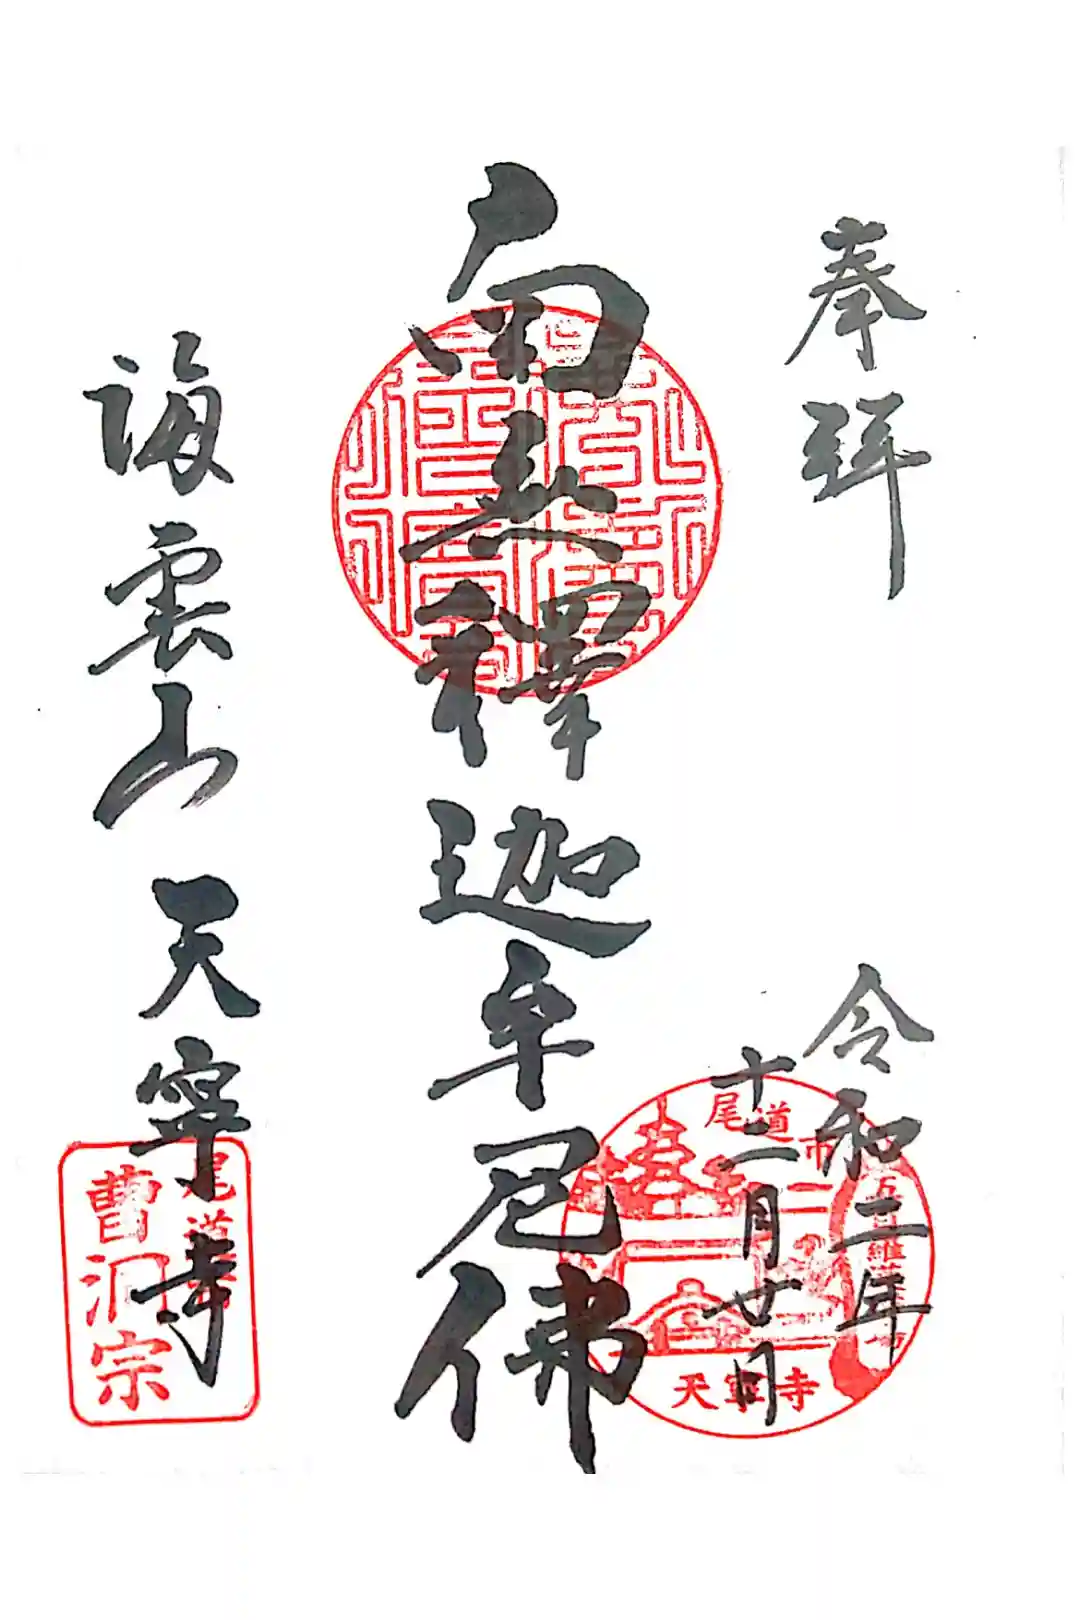 奉拝
令和二年
十一月廿日
南無釋迦牟尼佛
海雲山 天寧寺
尾道市
五百羅
天寧寺
尾道
曹洞宗